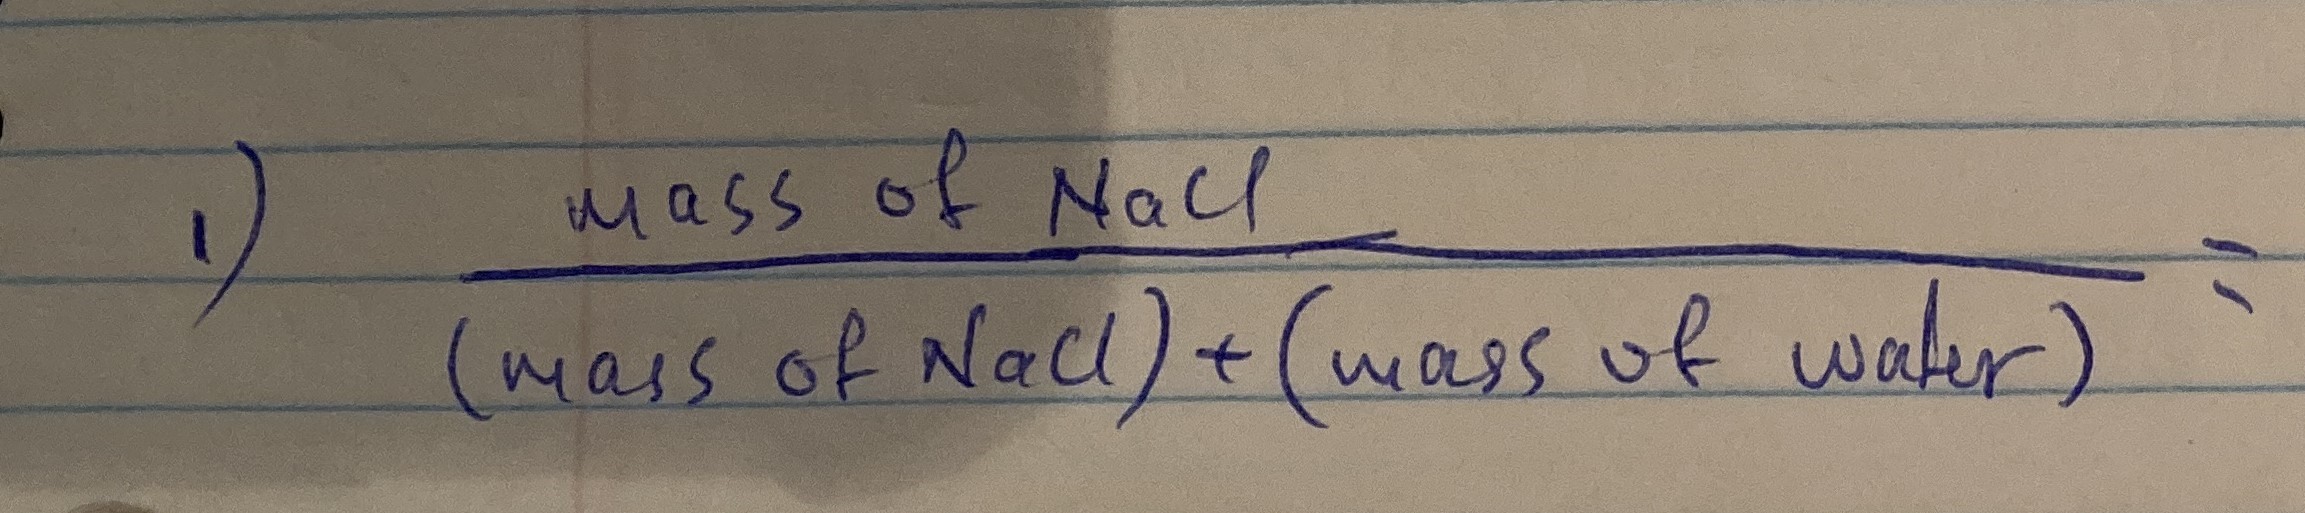 1) mass of NaCl
(mass of NaCl) + (mass of water) =